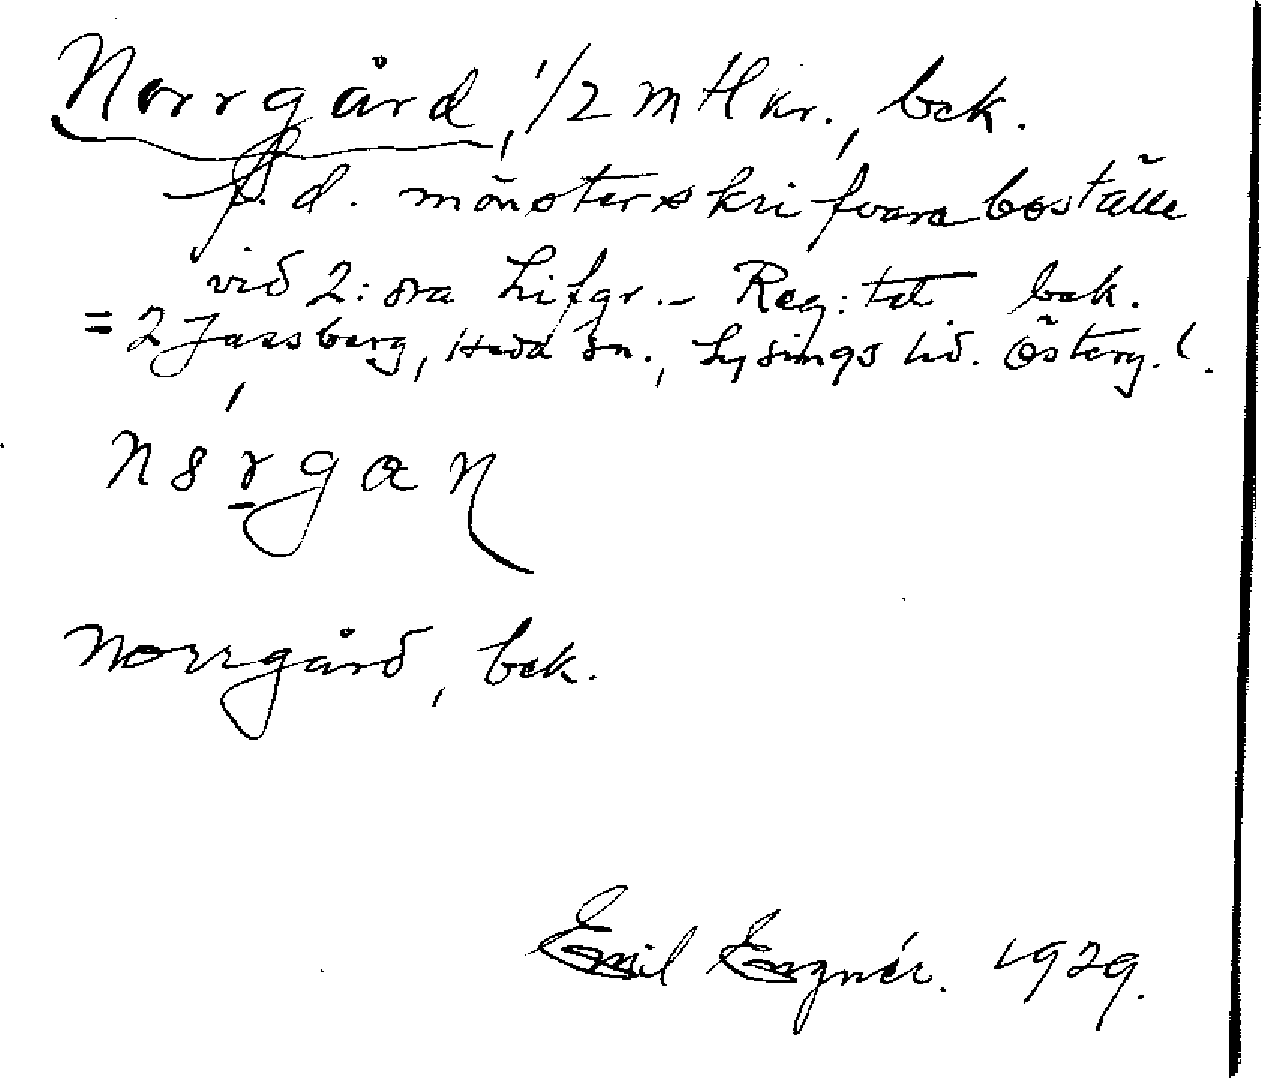 Norrgård, 1/2 mtl kr., bck.
f.d. mönsterskrifvareboställe
vid 2:dra Lifgr. - Reg:tet bck.
= 2 Jussberg, Heda sn., Lysings hd. Österg. l.
Norrgård, bck.
Emil Egnér. 1929.